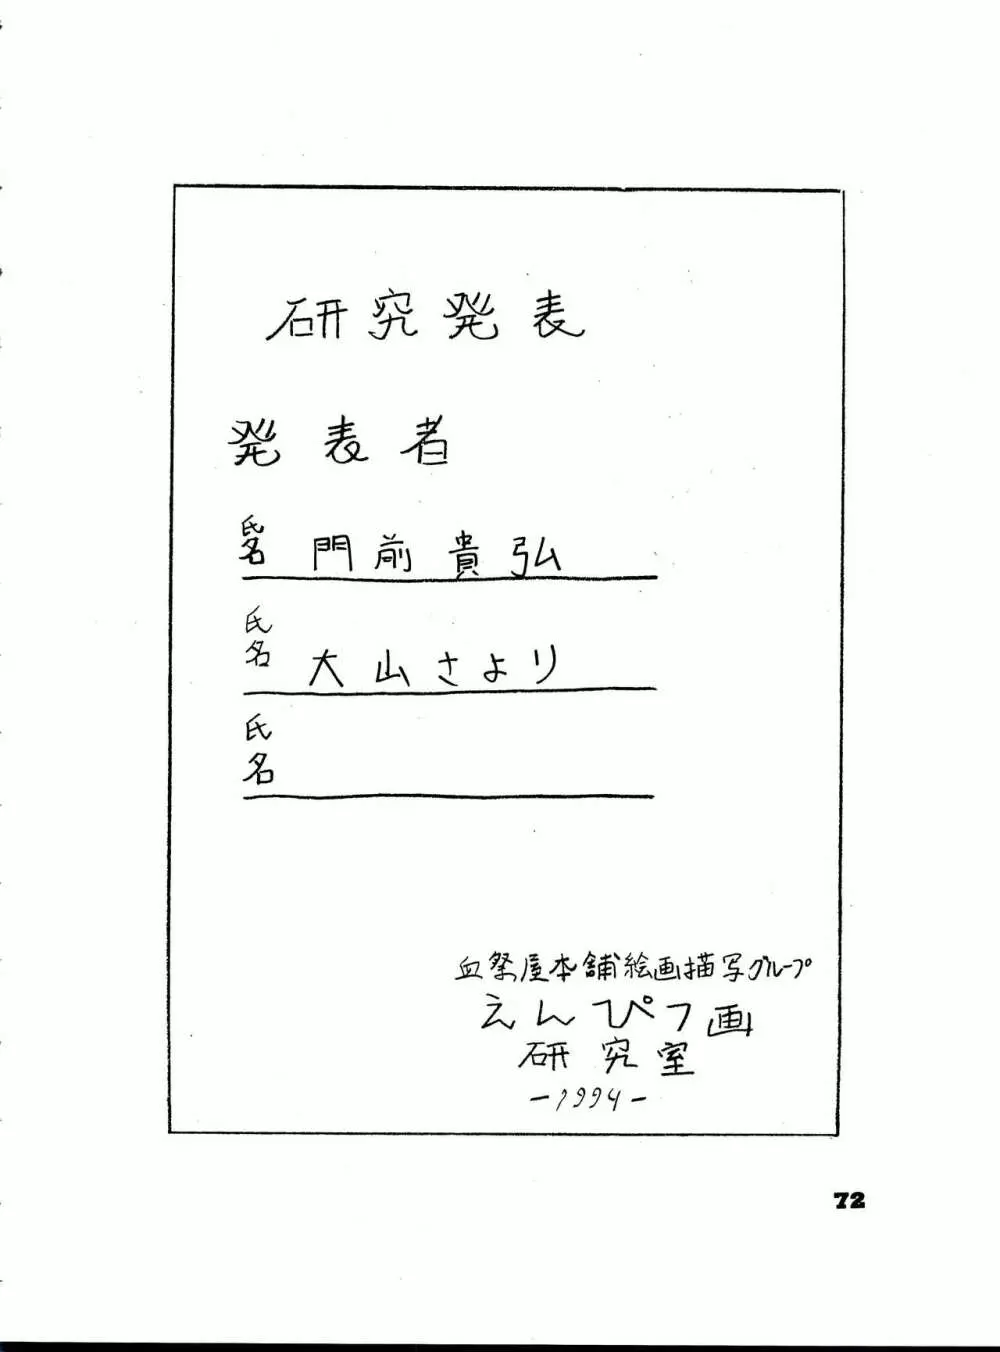 研究発表
発表者
氏名 門前貴弘
氏名 大山さより
氏名
血祭屋本舗絵画描写グループ
えんぴつ画
研究室
-1994-
72